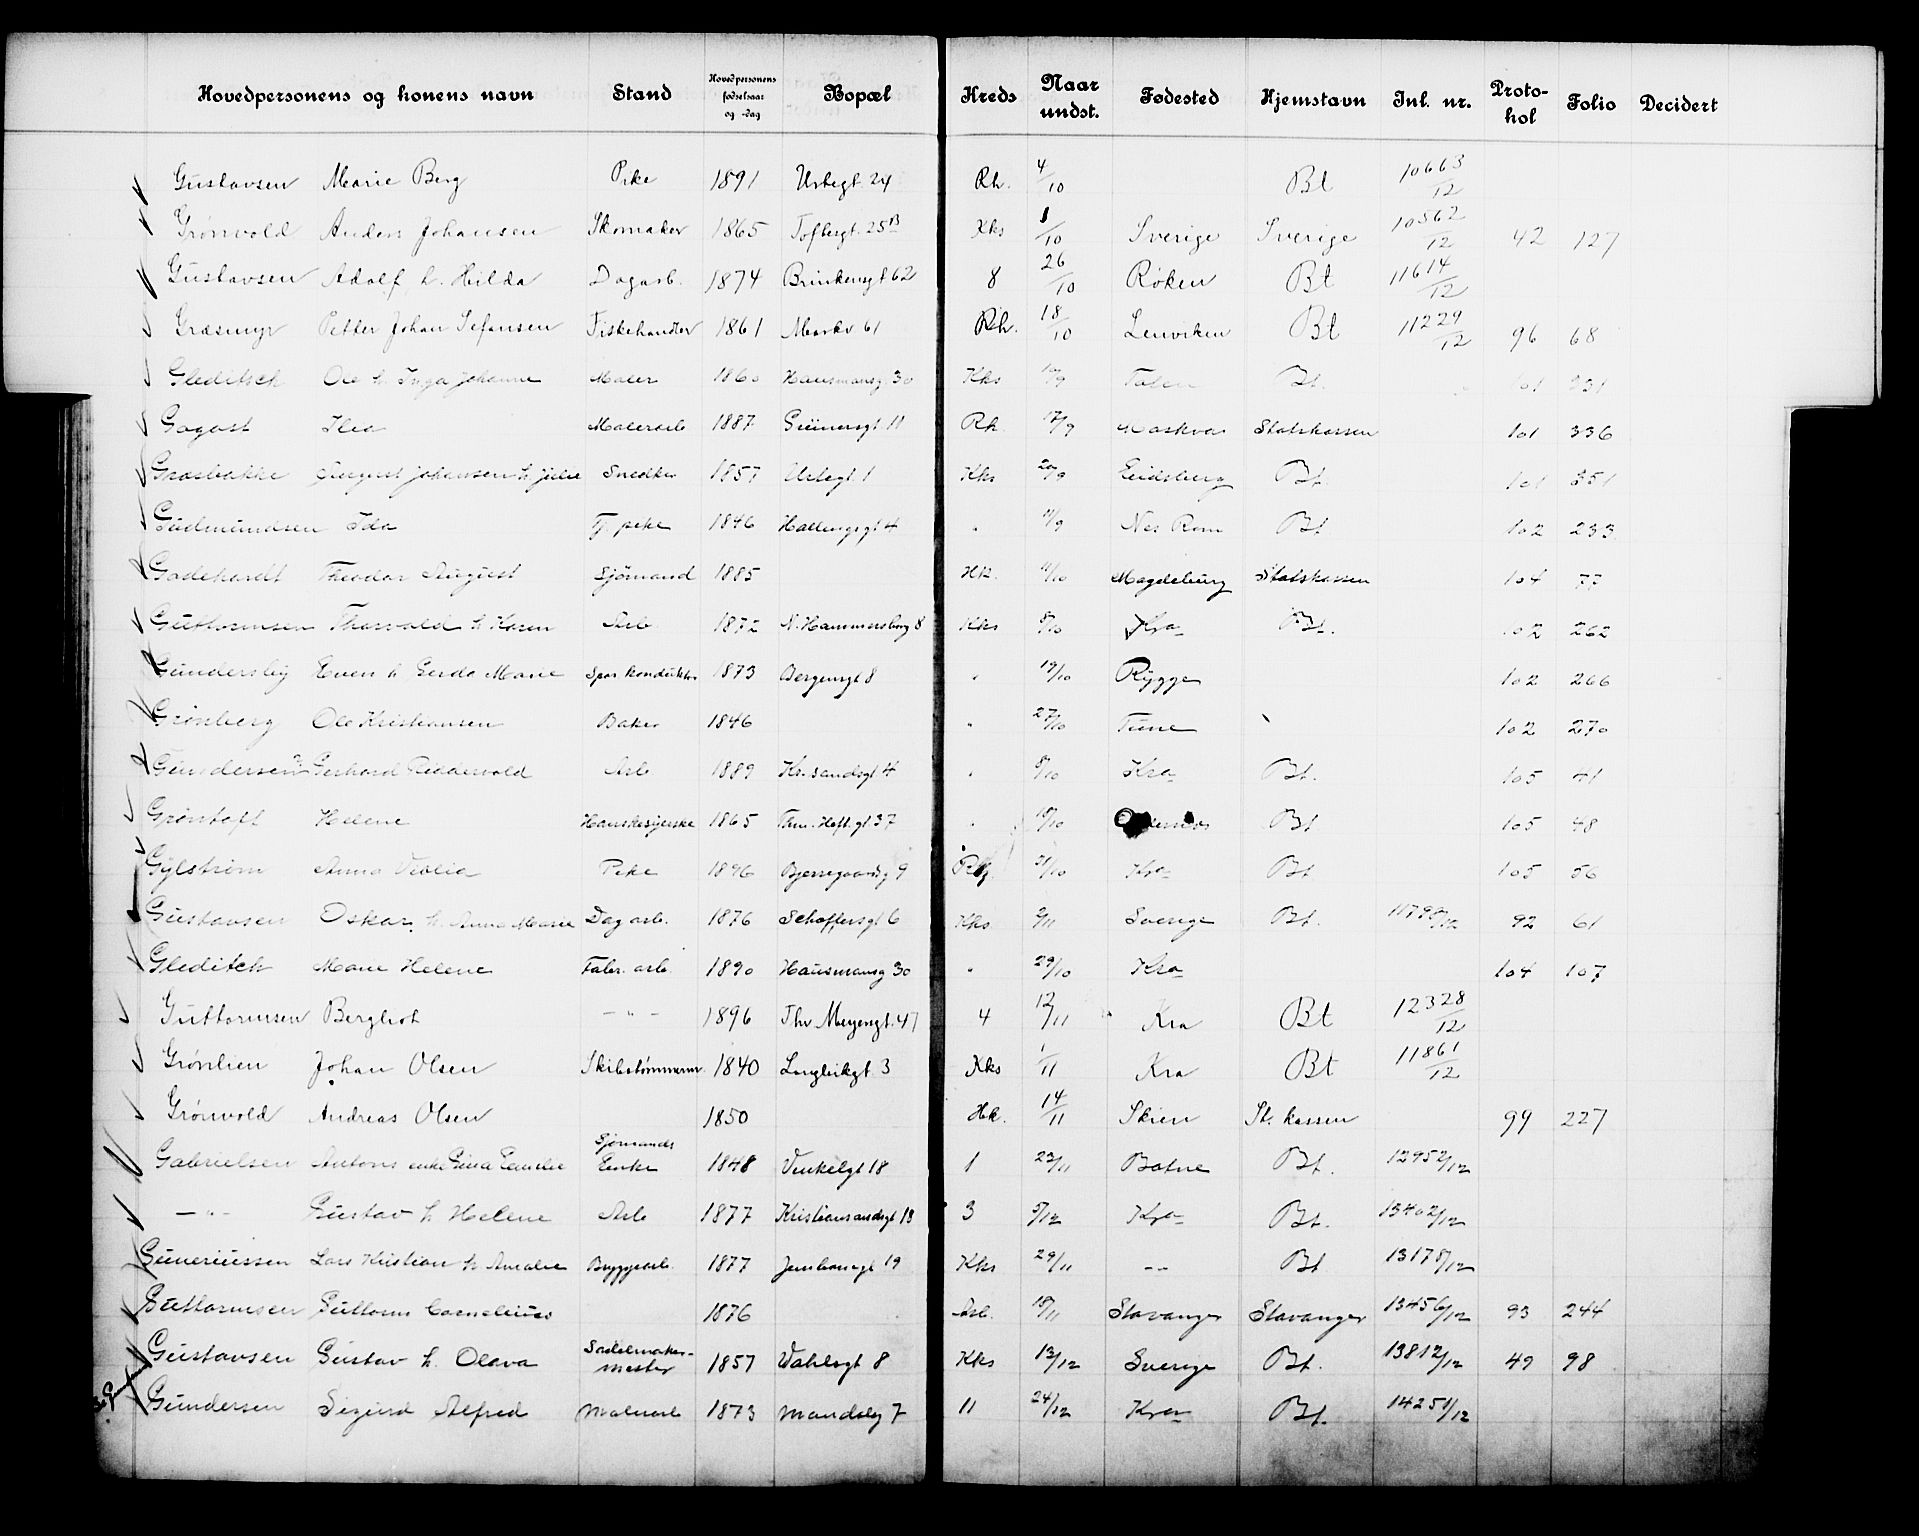 Hovedpersonens og konens navn Stand Hovedpersonens fødselsaar og -dag Bopæl Kreds Naar undst. Fødested Hjemstavn Inl. nr. Protokol Folio Decidert
Gustavsen Marie Berg Pike 1891 Urtegt 24 Rh. 4/10 Bt 10663/12
Grønvold Anders Johansen Skomaker 1865 Toftesgt. 25B Kks 1/10 Sverige Sverige 10562/12 42 127
Gustavsen Adolf h. Hilda Dagarb. 1874 Brinkensgt 62 8 26/10 Røken Bt 11614/12
Græsmyr Petter Johan Fiskehandler 1861 Markv 61 Rh. 18/10 Lenviken Bt 11229/12 96 68
Gleditsch Ole h Inga Johanne Maler 1860 Hausmansg 30 Kks Bt. 101
Gogost Malerarb 1887 Grünersgt 11 Rh. 17/9 Moskva Statskassen 101 336
Græsbakke August Johansen h Julie Snedker 1857 Urtegt 1 Kks 20/9 Eidsberg Bt. 101 351
Gudmundsen Ida Tj. pike 1846 Hallingsgt 4 " 11/9 Nes Rom Bt 102 233
Gadehardt Theodor August Sjømand 1885 Hk. 11/10 Magdeburg Statskassen 104 77
Guttormsen Thorvald h Karen Arb 1872 N. Hammersborg 8 Kks 8/10 Kra Bt. 102 262
Gundersby Even h Gerda Marie Spor. konduktør 1873 Bergensgt 8 " 19/10 Rygge 102 266
Grønberg Ole Kristiansen Baker 1846 " 27/10 Tune 102 270
Gundersen Gerhard Ridderwold Arb 1889 Kr.sandsgt 4 " 8/10 Kra Bt. 105 41
Grøntoft Helene Hanskesyerske 1865 Thm. Heft.gt 37 " 18/10 Bt 105 48
Gylstrøm Anna Pike 1896 Bjerregaardsg 9 31/10 Kra Bt 105 56
Gustavsen Oskar, h. Anna Marie Dagarb. 1876 Schaffersgt 6 Kks 2/11 Sverige Bt. 92 61
Gleditch Marie Helene Fabr. arb. 1890 Hausmansg 30 " 29/10 Kra 104 107
Guttormsen Bergliot — " — 1896 Thv Meyersgt. 47 4 12/11 Kra Bt 12328/12
Grønlien Johan Olsen Skibstømmerm. 1840 Langleikgt. 3 Kks 1/11 Kra Bt 11861/12
Grønvold Andreas Olsen 1850 Hk. 14/11 Skien St. kassen 99 227
Gabrielsen Antons enke Gina Emilie Sjømands Enke 1848 Vinkelgt 18 1 23/11 Botne Bt. 12952/12
— " — Gustav h Helene Arb 1877 Kristiansandsgt 13 3 5/12 Kra Bt. 13402/12
Guneriussen Lars Kristian h Amalie Byggearb. 1877 Jernbanegt 19 Kks 29/11 — — Bt 13178/12
Guttormsen Guttorm Cornelius 1876 18/11 Stavanger Stavanger 13456/12 93 244
Gustavsen Gustav h. Olava Sadelmakermester 1857 Wahlsgt 8 Kks 13/12 Sverige Bt. 13812/12 49 98
Gundersen Sigurd Alfred Malerarb 1873 Mandalsg 7 11 24/12 Kra Bt. 14251/12